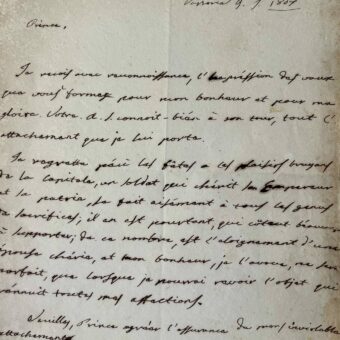 1807
Prince,
Je reçois avec reconnoissance, l'expression des vœux
que vous formez pour mon bonheur et pour ma
gloire. Votre A. S. connoit bien à son tour, tout l'
attachement que je lui porte.
Je regrette peu les fêtes & les plaisirs bruyans
de la Capitale, un soldat qui chérit son Empereur
et la patrie, se fait aisément à tous les genres
de sacrifices; il en est pourtant, qui coûtent beaucoup
à supporter; de ce nombre, est l'éloignement d'une
épouse chérie, et mon bonheur, je l'avoue, ne sera
parfait, que lorsque je pourrai revoir l'objet qui
réunit toutes mes affections.
Veuillez, Prince agréer l'assurance de mon inviolable
attachement